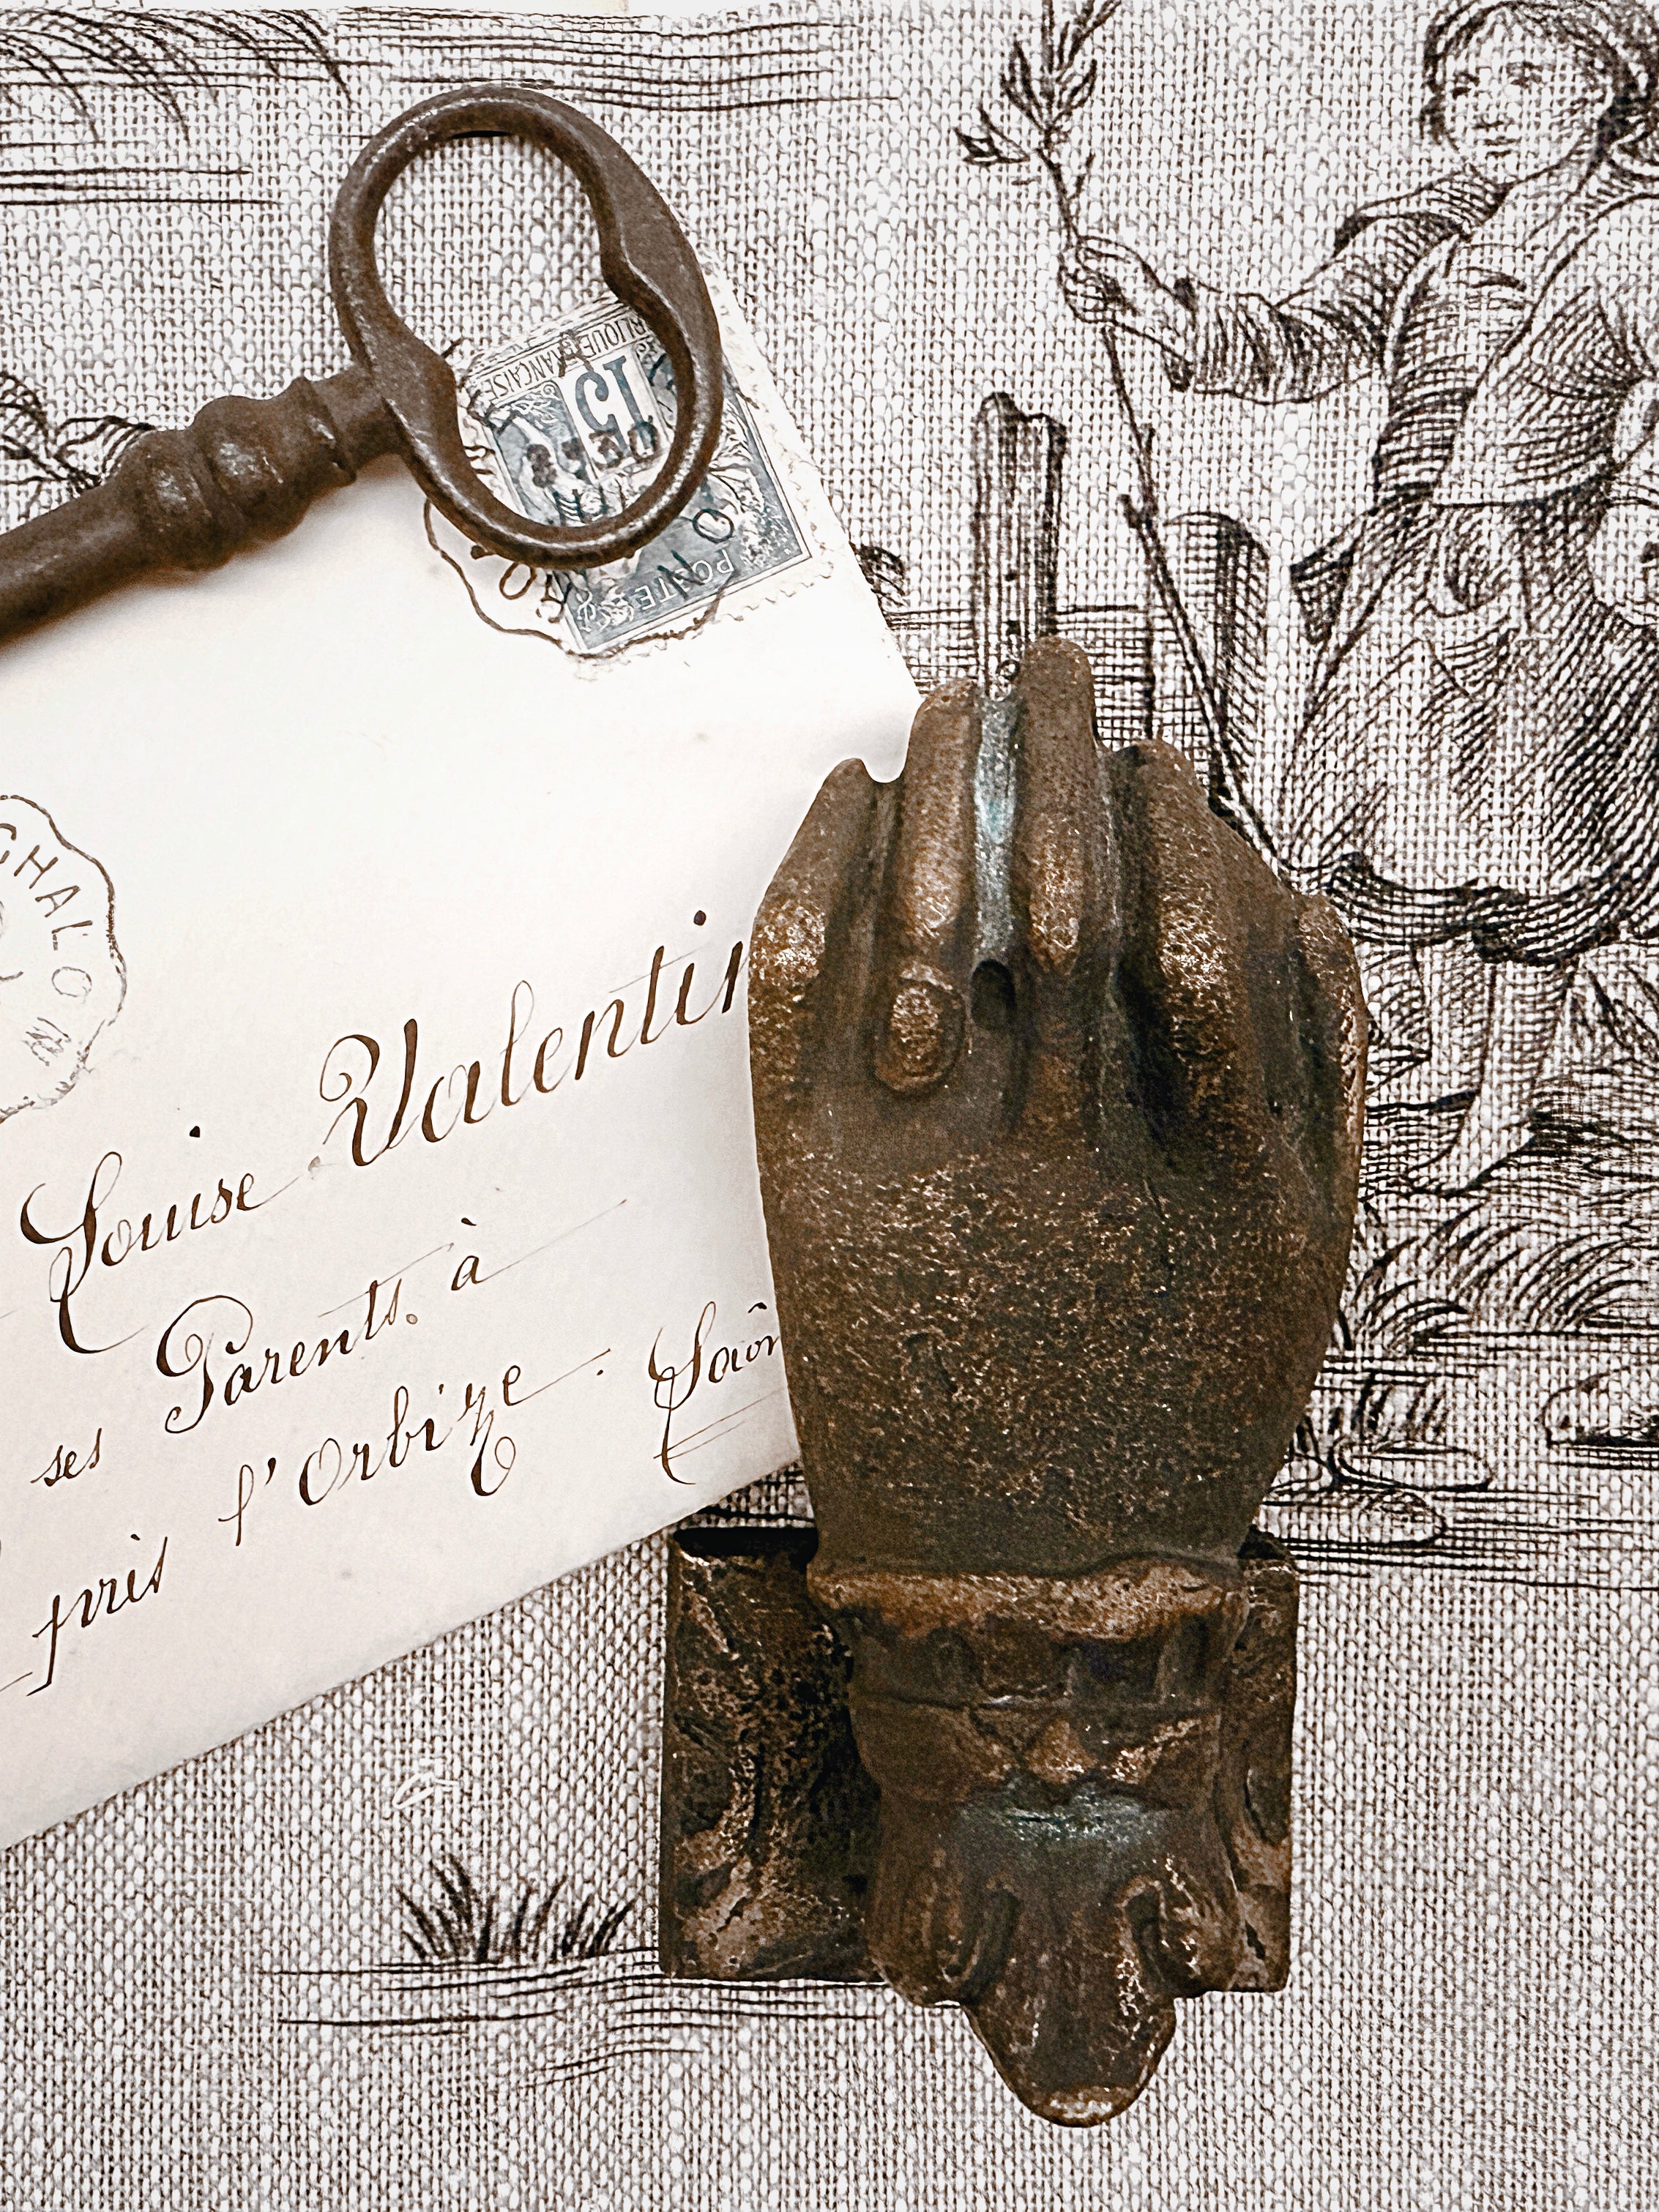 RÉPUBLIQUE FRANÇAISE
15
POSTES
CHALON
Louise Valentin
ses Parents. à
près l'Orbize. Saôn